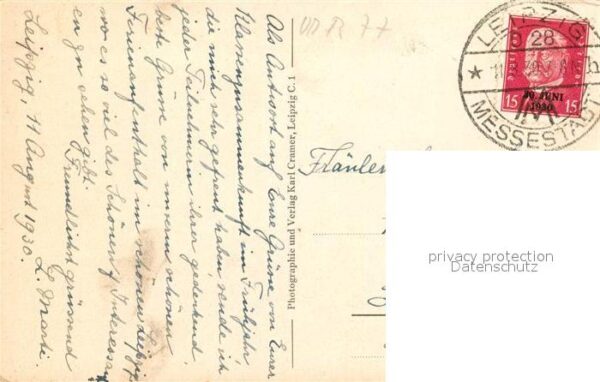 Als Antwort auf Eure Grüsse von Eurer
Klassenzusammenkunft im Frühjahr,
die mich sehr gefreut haben, sende ich
jeder Teilnehmerin ihrer gedenkend
beste Grüsse von unserm schönen
Ferienaufenthalt im schönen Leipzig
wo es so viel des Schönen & Interessan
en zu sehen gibt.
Freundlichst grüssend
Leipzig, 11 August 1930. L. Marti.
Photographie und Verlag Karl Cramer, Leipzig C. 1
Fräulein
LEIPZIG
28
MESSESTADT
15 30. JUNI 15
1930
privacy protection
Datenschutz